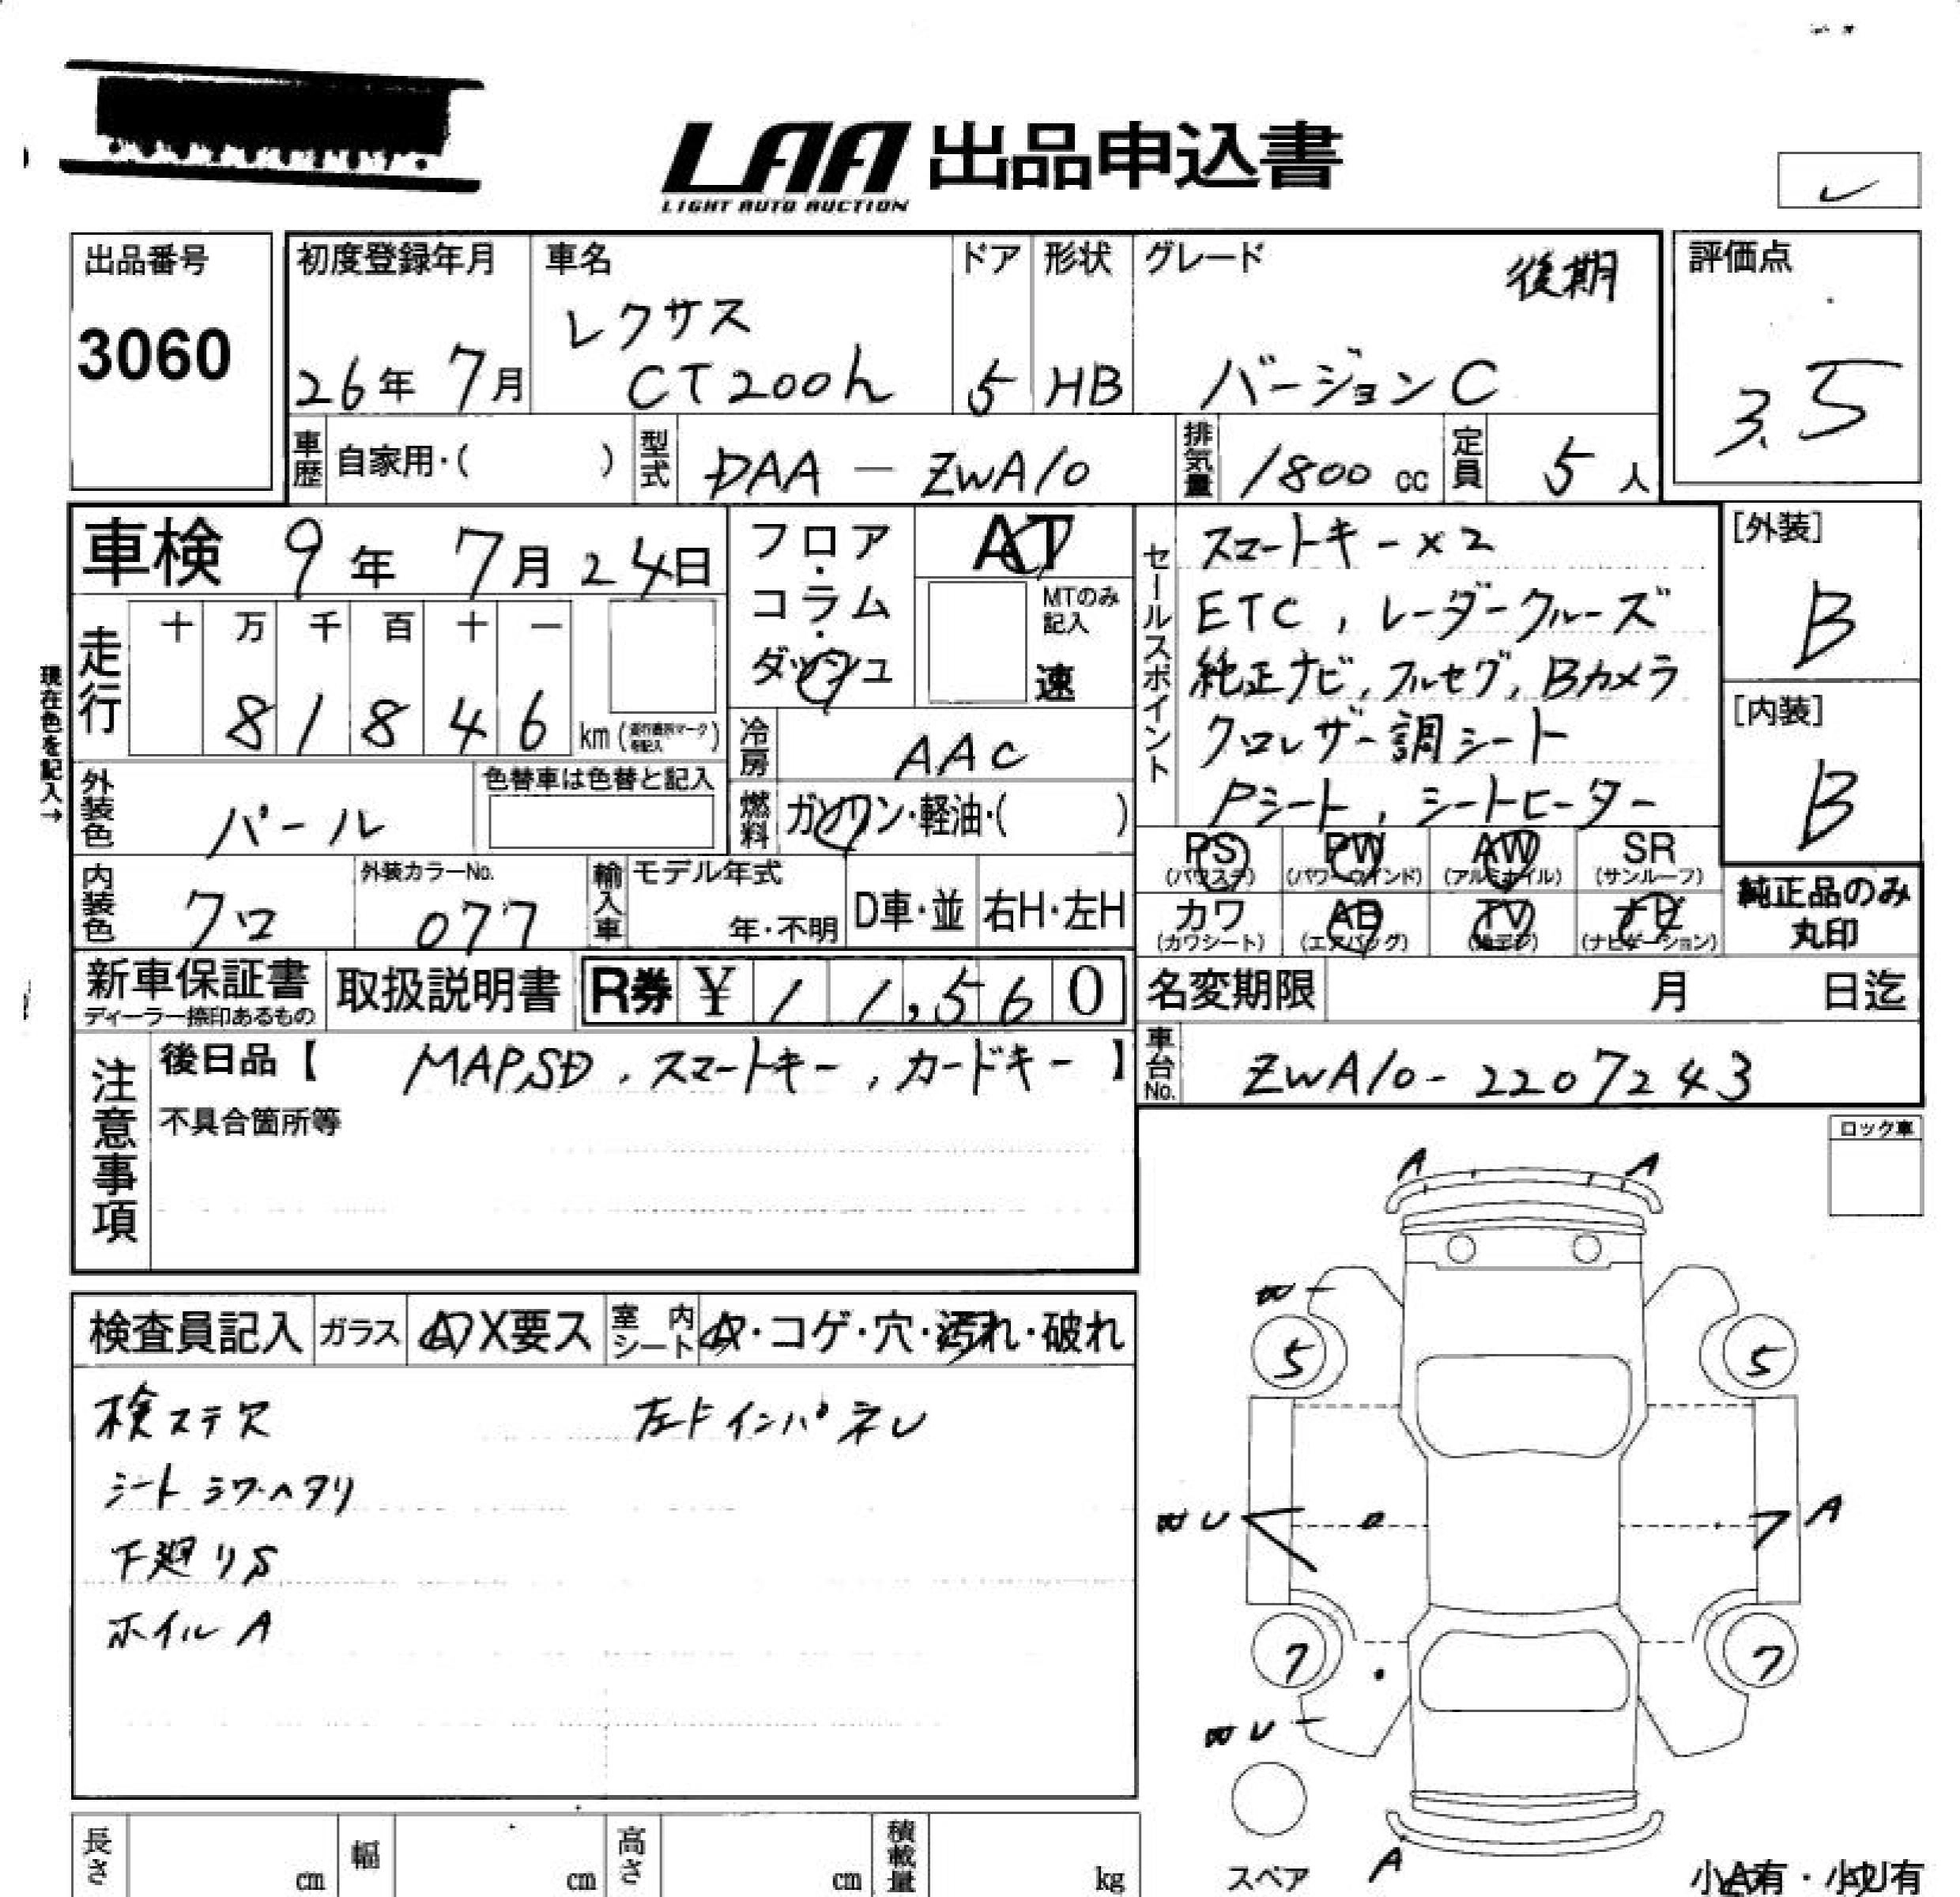 LAA 出品申込書
LIGHT AUTO AUCTION
出品番号
3060
初度登録年月
26年 7月
車名
レクサス
CT200h
ドア
5
形状
HB
グレード
後期
バージョンC
評価点
3.5
車歴 自家用・( )
型式 DAA - ZWA10
排気量 1800 cc
定員 5 人
車検 9年 7月 24日
フロア・コラム・ダッシュ
AT
MTのみ記入
速
セールスポイント
スマートキー×2
ETC, レーダークルーズ
純正ナビ, フルセグ, Bカメラ
クロレザー調シート
Pシート, シートヒーター
[外装]
B
[内装]
B
現在色を記入→
走行
十 万 千 百 十 一
8 1 8 4 6 km
冷房 AAC
燃料 ガソリン・軽油・( )
外装色 パール
色替車は色替と記入
PS (パワステ)
PW (パワーウインド)
AW (アルミホイル)
SR (サンルーフ)
カワ (カワシート)
AB (エアバッグ)
TV (地デジ)
ナビ (ナビゲーション)
純正品のみ丸印
内装色 クロ
外装カラーNo. 077
輸入車 モデル年式
年・不明
D車・並
右H・左H
新車保証書
ディーラー捺印あるもの
取扱説明書
R券 ¥ 1 1,5 6 0
名変期限 月 日迄
車台No. ZWA10-2207243
注意事項
後日品【 MAPSD, スマートキー, カードキー 】
不具合箇所等
ロック車
検査員記入
ガラス A X要ス
室内シート A・コゲ・穴・汚れ・破れ
検ステ欠
左Fインパネレ
シートシワ・ヘタリ
下廻りS
ホイルA
A A
5 5
U A
7 7
U
A
スペア
小A有・小U有
長さ cm
幅 cm
高さ cm
積載量 kg